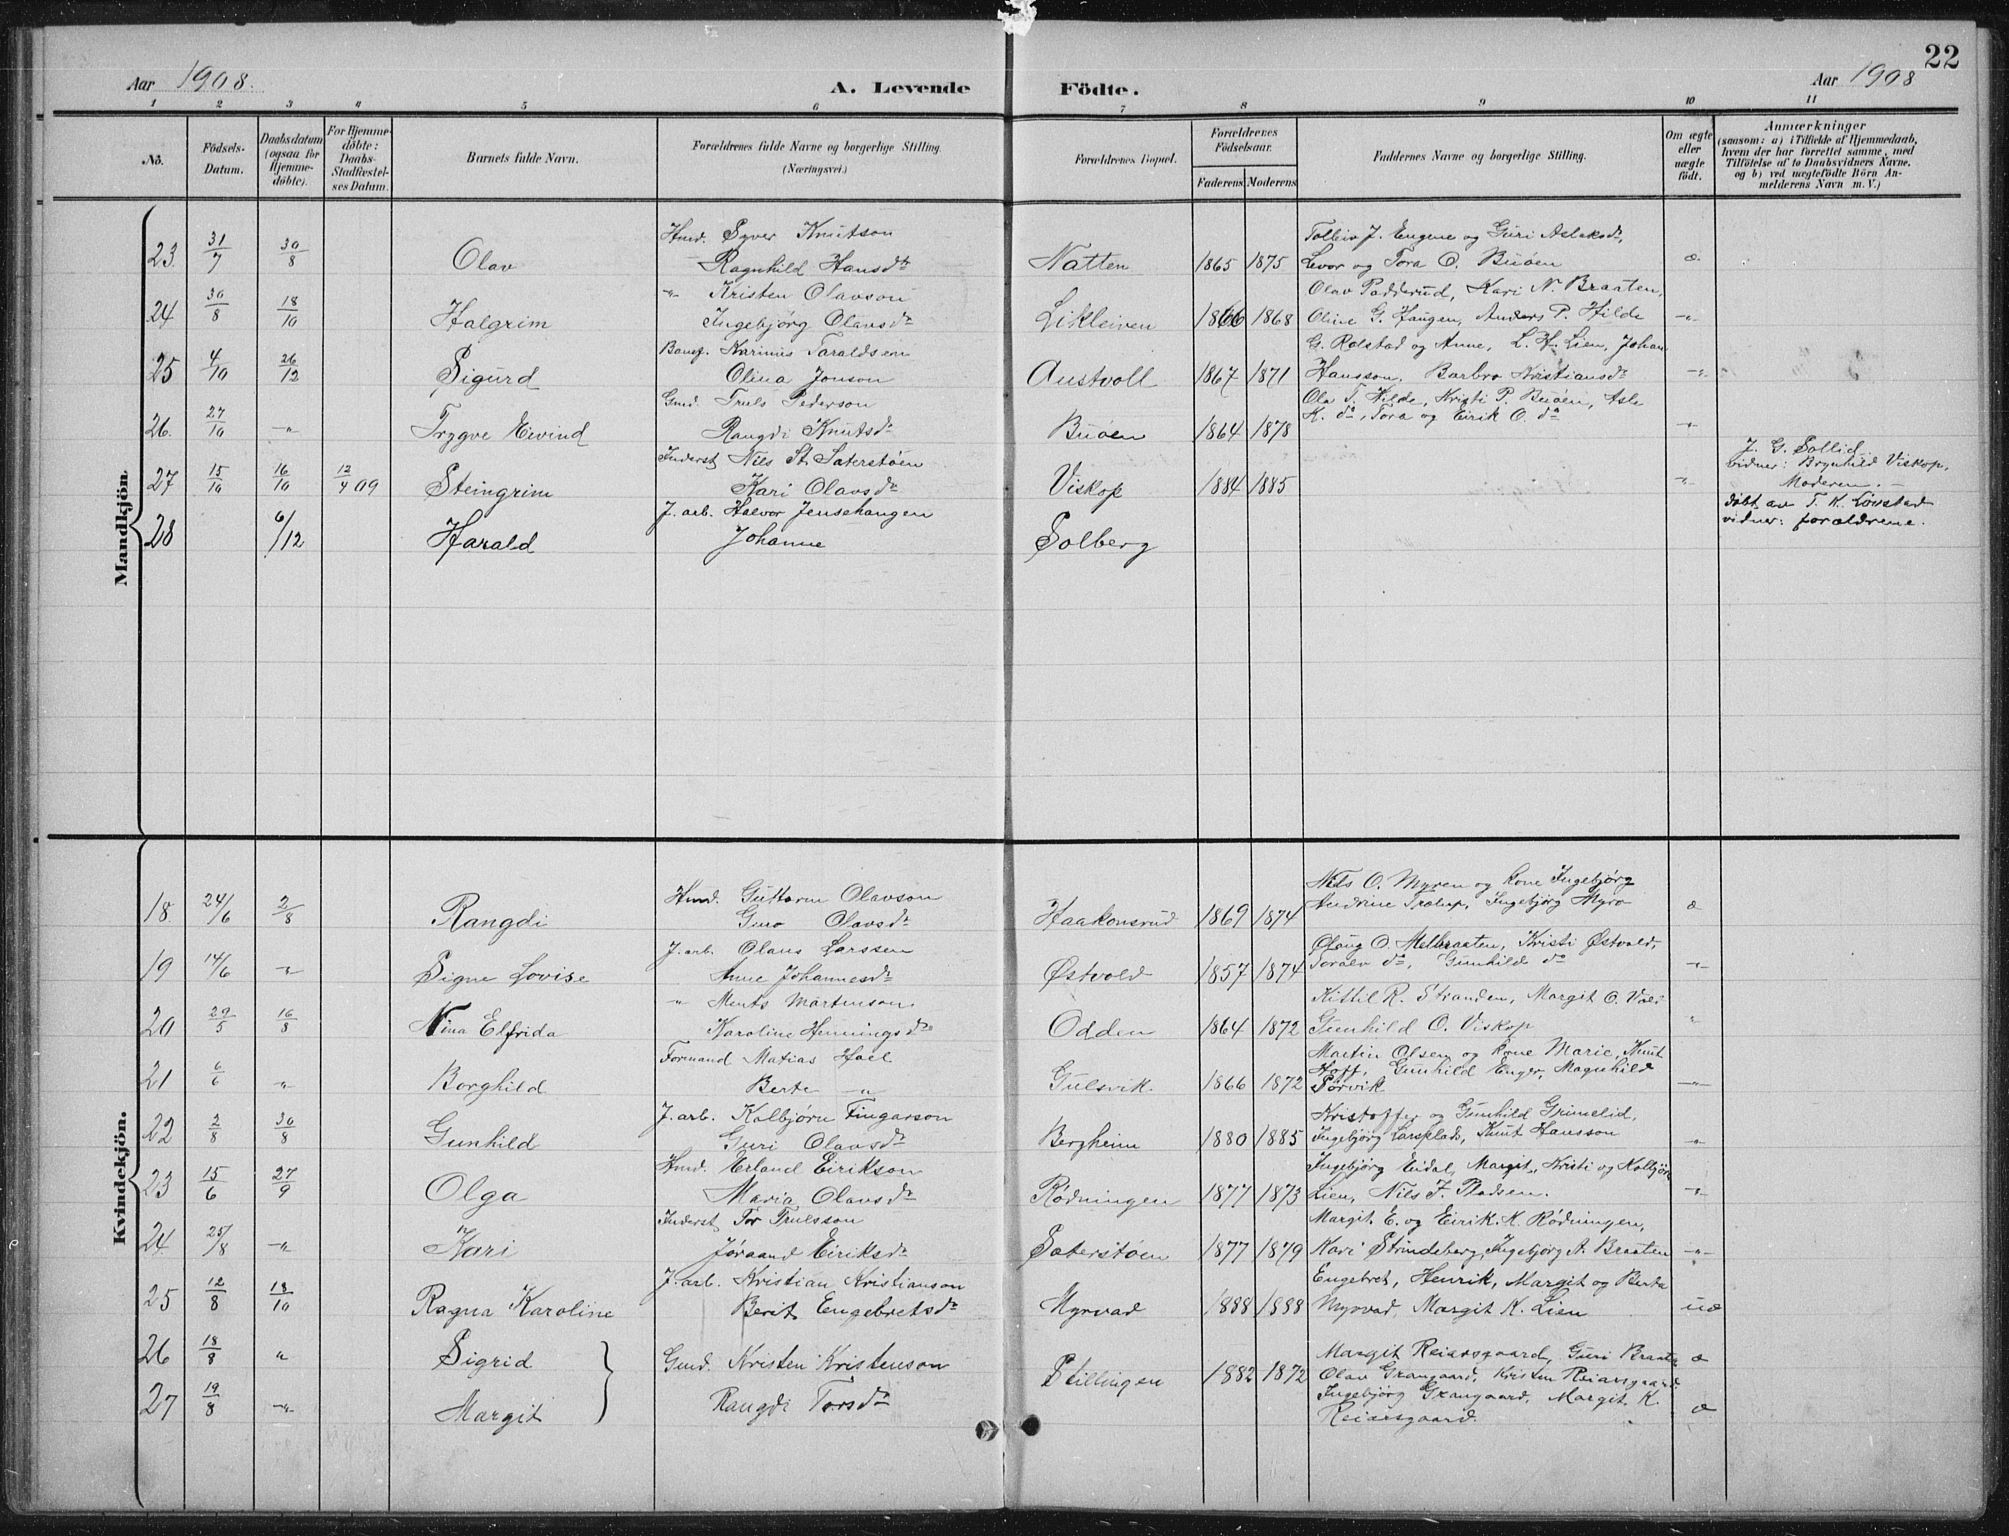 22
Aar 1908. A. Levende Födte. Aar 1908
1 2 3 4 5 6 7 8 9 10 11
No. Födsels-Datum. Daabsdatum (ogsaa for Hjemme-døbte). For Hjemme-døbte: Daabs-Stadfæstel-ses Datum. Barnets fulde Navn. Forældrenes fulde Navne og borgerlige Stilling. (Næringsvei.) Forældrenes Bopæl. Forældrenes Födselsaar. Faderens Moderens Faddernes Navne og borgerlige Stilling. Om ægte eller uægte födt. Anmærkninger
(saasom: a) i Tilfælde af Hjemmedaab,
hvem der har forrettet samme, med
Tilföielse af to Daabsvidners Navne,
og b) ved uægtefödte Börn An-
melderens Navn m. V.)
Mandkjön.
Hmd. Syver Knutson Tolleiv J. Engene og Guri Aslaksdr,
23 31/7 30/8 Olav Ragnhild Hansdr Natten 1865 1875 Levor og Tora O. Buøen æ.
" Kristen Olavson Olav Padderud, Kari N. Braaten,
24 30/8 18/10 Halgrim Ingebjörg Olavsdr Likleiven 1866 1868 Oline G. Haugen, Anders P. Hilde -"-
Banef. Karinius Taraldsen G. Rolstad og Anne, L. H. Lien, Johan
25 4/10 26/12 Sigurd Olina Jonson Austvoll 1867 1871 Hansson, Barbro Kristiansdr -"-
Gmd. Truls Pederson Ola T. Hilde, Kristi P. Buøen, Asle
26. 27/10 -"- Trygve Eivind Rangdi Knutsdr Buöen 1864 1878 K. do, Tora og Eirik O. do -"-
Inderst Nils St. Saterstøen J. G. Sollid
27 15/10 16/10 12/4 09 Steingrim Kari Olavsdr Viskop 1884 1885 -"- vidner: Brynhild Viskop,
Moderen. -
J. arb. Halvor Jensehaugen døbt av T. K. Lövstad
28 6/12 Harald Johanne Solberg vidner: forældrene.
Kvindekjön.
Hmd. Guttorm Olavson Nils O. Myren og kone Ingebjørg
18. 24/6 2/8 Rangdi Guro Olavsdr Haakonsrud 1869 1874 Ingebjörg Myro æ
J. arb. Olaus Larssen O. Melbraaten, Kristi Østvold,
19 14/6 -"- Signe Lovise Anne Johannesdr Østvold 1857 1874 Toralv do, Gunhild do -"-
" Ments Martinson Kittil R. Stranden, Margit O. Vold
20 29/5 16/8 Nina Elfrida Karoline Henningsdr Odden 1864 1872 Gunhild O. Viskop "
Formand Matias Hoel Martin Olsen og kone Marie, Knut
21 6/6 " Borghild Berte -"- Gulsvik. 1866 1872 Hoff, Gunhild Enger, Magnhild
Sörvik -"-
J. arb. Kolbjörn Fingarson Kristoffer og Gunhild Grimelid,
22 2/8 30/8 Gunhild Guri Olavsdr Bergheim 1880 1885 Ingebjörg Larsplads, Knut Hansson "
Hmd. Erland Eirikson Ingebjörg Eidal, Margit, Kristi og Kolbjörn
23 15/6 27/9 Olga Maria Olavsdr Rödningen 1877 1873 Lien, Nils J. Pladsen. -"-
Inderst Tor Trulsson Margit E. og Eirik K. Rödningen,
24. 25/8 -"- Kari Jöraand Eiriksdr Saterstöen 1877 1879 Kari Strindeberg, Ingebjörg A. Braaten -"-
J. arb. Kristian Kristianson Engebret, Henrik, Margit og Berta
25 12/8 18/10 Ragna Karoline Berit Engebretsdr Myrvad 1888 1888 Myrvad, Margit K. Lien uæ
26 18/8 " Sigrid Gmd. Kristen Kristenson Margit Reiarsgaard, Guri Braaten æ
Stillingen 1882 1872 Olav Grangaard, Kristen Reiarsgaard,
27 19/8 -"- Margit Rangdi Torsdr Ingebjörg Grangaard, Margit K. æ
Reiarsgaard.